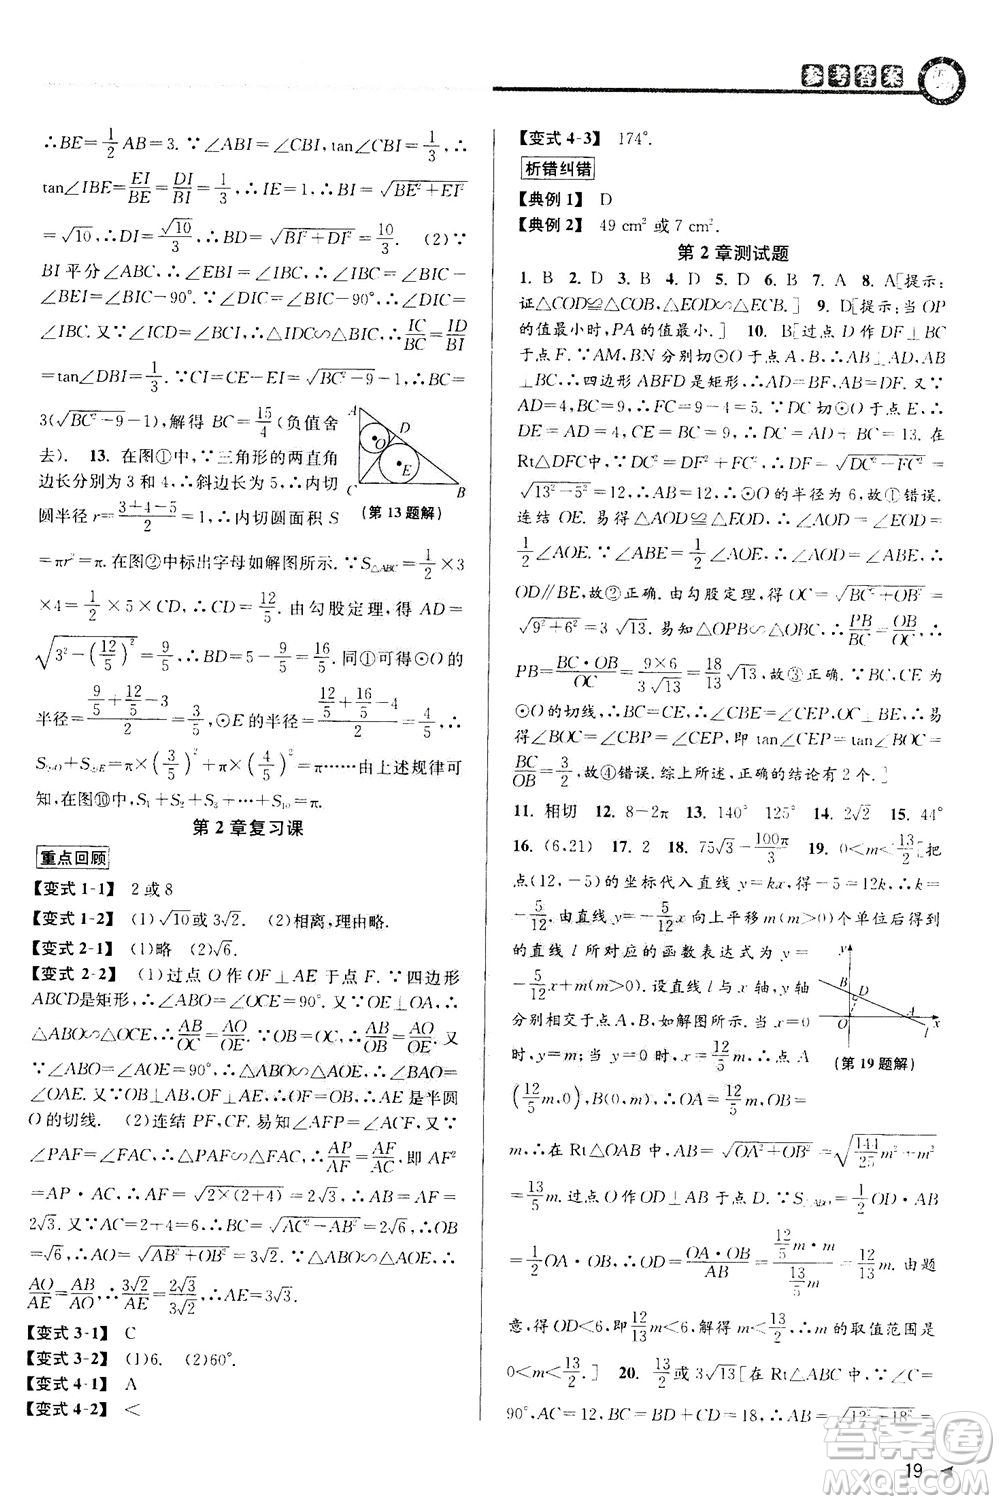 参考答案
∴BE=1/2 AB=3.∵∠ABI=∠CBI,tan∠CBI=1/3,∴
tan∠IBE=EI/BE=DI/BI=1/3,∴IE=1,∴BI=√(BE²+EI²)
=√10,∴DI=√10/3,∴BD=√(BI²+DI²)=10/3. (2)∵
BI平分∠ABC,∴∠ABI=∠CBI.∵∠DIC=∠BIE,
∠IBE=∠BIC-90°,∴∠DIC=∠BIC-90°=∠BIE=
∠IBC.又∵∠ICD=∠ICB,∴△IDC∽△BIC,∴IC/BC=ID/BI
=tan∠DBI=1/3.∵CI=CE-EI=√(BC²-9)-1,∴BC=
3(√(BC²-9)-1),解得BC=15/4(负值舍
去). 13. 在图①中,∵三角形的两直角
边长分别为3和4,∴斜边长为5,∴内切
圆半径r=(3+4-5)/2=1,∴内切圆面积S
(第13题解)
=πr²=π.在图②中标出字母如解图所示.∵S△ABC=1/2×3
×4=1/2×5×CD,∴CD=12/5.由勾股定理,得AD=
√(3²-(12/5)²)=9/5,∴BD=5-9/5=16/5.同①可得⊙O的
半径=(9/5+12/5-3)/2=3/5,⊙E的半径=(12/5+16/5-4)/2=4/5,∴
S⊙O+S⊙E=π×(3/5)²+π×(4/5)²=π.由上述规律可
知,在图⑩中,S₁+S₂+S₃+…+S₁₀=π.
第2章复习课
重点回顾
【变式1-1】 2或8
【变式1-2】 (1)√10或3√2. (2)相离,理由略.
【变式2-1】 (1)略 (2)√6.
【变式2-2】 (1)过点O作OF⊥AE于点F.∵四边形
ABCD是矩形,∴∠ABO=∠OCE=90°.又∵OE⊥OA,∴
△ABO∽△OCE,∴AB/OC=AO/OE.∵OB=OC,∴AB/OB=AO/OE.又
∵∠ABO=∠AOE=90°,∴△ABO∽△AOE,∴∠BAO=
∠OAE.又∵OB⊥AB,OF⊥AE,∴OF=OB,∴AE是半圆
O的切线. (2)连结PF,CF.易知∠AFP=∠ACF.又∵
∠PAF=∠FAC,∴△PAF∽△FAC,∴AP/AF=AF/AC,即AF²
=AP·AC,∴AF=√(2×(2+4))=2√3,∴AB=AF=
2√3.又∵AC=2+4=6,∴BC=√(AC²-AB²)=2√6,∴OB
=√6,∴AO=√(AB²+OB²)=3√2.∵△ABO∽△AOE,∴
AO/AE=AB/AO,∴3√2/AE=2√3/3√2,∴AE=3√3.
【变式3-1】 C
【变式3-2】 (1)6. (2)60°.
【变式4-1】 A
【变式4-2】 <
【变式4-3】 174°.
析错纠错
【典例1】 D
【典例2】 49 cm²或7 cm².
第2章测试题
1. B 2. D 3. B 4. D 5. D 6. B 7. A 8. A[提示:
证△COD≌△COB,△EOD∽△ECB.] 9. D[提示:当OP
的值最小时,PA的值最小.] 10. B[过点D作DF⊥BC
于点F.∵AM,BN分别切⊙O于点A,B,∴AB⊥AD,AB
⊥BC,∴四边形ABFD是矩形,∴AD=BF,AB=DF.又∵
AD=4,BC=9,∴FC=9-4=5.∵DC切⊙O于点E,∴
DE=AD=4,CE=BC=9,∴DC=DE+CE=13.在
Rt△DFC中,∵DC²=DF²+FC²,∴DF=√(DC²-FC²)=
√(13²-5²)=12,∴AB=12,∴⊙O的半径为6,故①错误.
连结OE.易知△AOD≌△EOD,∴∠AOD=∠EOD=
1/2∠AOE.∵∠ABE=1/2∠AOE,∴∠AOD=∠ABE,∴
OD∥BE,故②正确.由勾股定理,得OC=√(BC²+OB²)=
√(9²+6²)=3√13.易知△OPB∽△OBC,∴PB/BC=OB/OC,∴
PB=BC·OB/OC=9×6/3√13=18/13√13,故③正确.∵BC,CE为
⊙O的切线,∴BC=CE,∴∠CBE=∠CEP.OC⊥BE,易
得∠BOC=∠CBP=∠CEP,即tan∠CEP=tan∠BOC=
BC/OB=3/2,故④错误.综上所述,正确的结论有2个.]
11. 相切 12. 8-2π 13. 140° 125° 14. 2√2 15. 44°
16. (6,21) 17. 2 18. 75√3-100π/3 19. 0<m<13/2[把
点(12,-5)的坐标代入直线y=kx,得-5=12k,∴k=
-5/12.由直线y=-5/12x向上平移m(m>0)个单位后得到
的直线l所对应的函数表达式为y=
-5/12x+m(m>0).设直线l与x轴,y轴
分别相交于点A,B,如解图所示.当x=0
时,y=m;当y=0时,x=12/5m,∴点A
(第19题解)
(12/5m,0),B(0,m),∴OA=12/5m,OB=
m,∴在Rt△OAB中,AB=√(OA²+OB²)=√(144/25m²+m²)=
13/5m.过点O作OD⊥AB于点D.∵S△OAB=1/2OD·AB
=1/2OA·OB,∴OD=OA·OB/AB=(12/5m·m)/(13/5m)=12/13m.由题
意,得OD<6,即12/13m<6,∴m<13/2,∴m的取值范围是
0<m<13/2.] 20. 13/2或3√13[在Rt△ABC中,∵∠C=
90°,∴BC=12,BD+CD=18,∴AB=√(12²-18²)=
19
答案圈
MXQE.COM